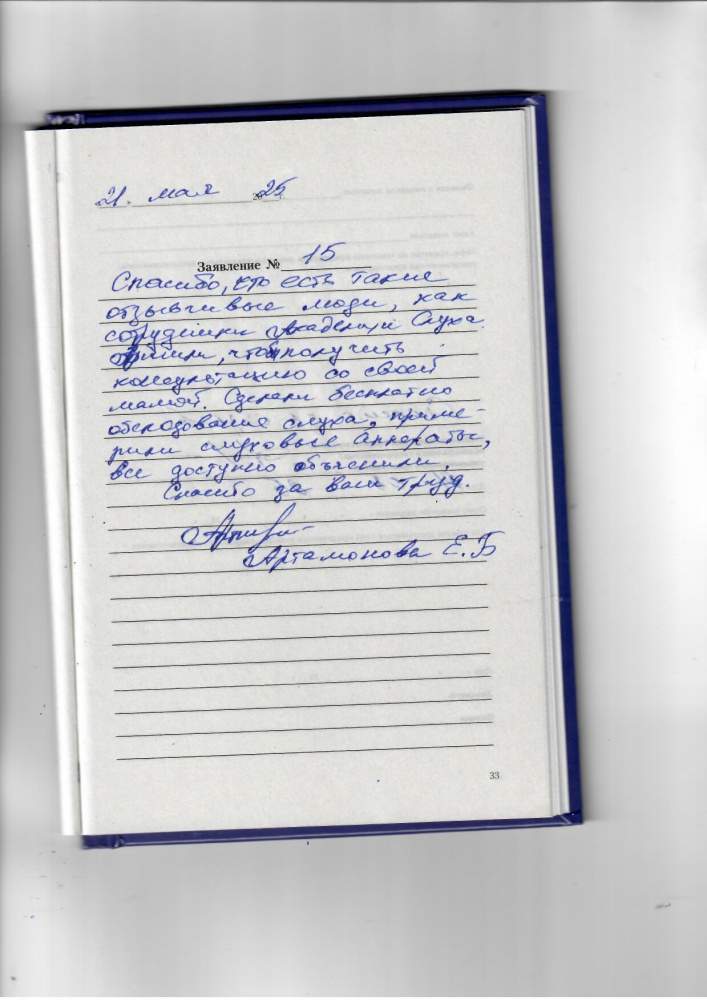 21. мая 2025
Заявление № 15
Спасибо, что есть такие
отзывчивые люди, как
сотрудники Академии Слуха.
Пришли, чтоб получить
консультацию со своей
мамой. Сделали бесплатно
обследование слуха, приме-
рили слуховые аппараты,
все доступно объяснили.
Спасибо за ваш труд.
Артамонова Е.Б
33